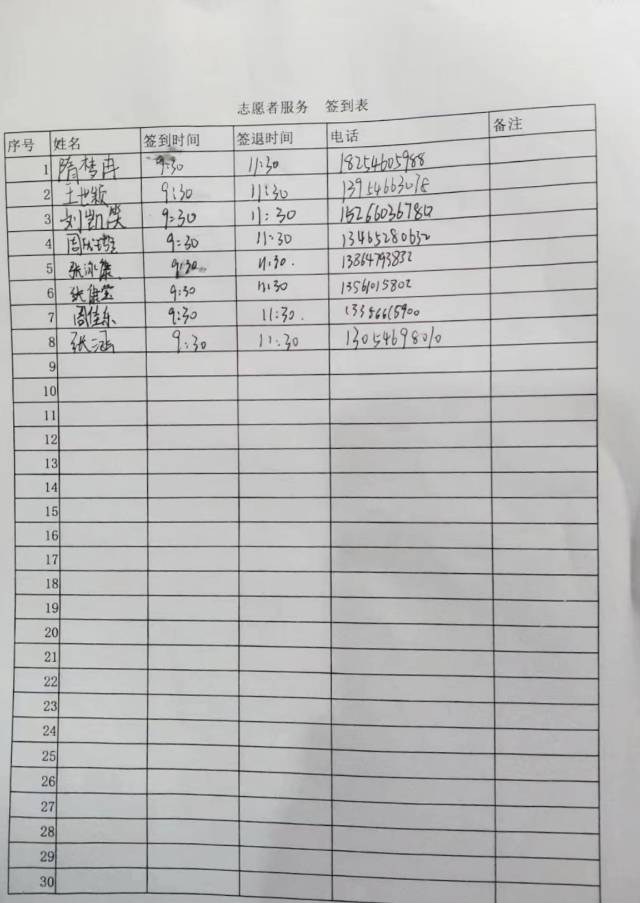 志愿者服务 签到表
序号 姓名 签到时间 签退时间 电话 备注
1 隋梦冉 9:30 11:30 18254605988
2 9:30 11:30 13954663078
3 刘凯笑 9:30 11:30 15266036780
4 9:30 11:30 13465280632
5 9:30 11:30. 13864793832
6 9:30 11:30 13561015802
7 周佳乐 9:30 11:30.
8 张涵 9:30 11:30 13054698010
9
10
11
12
13
14
15
16
17
18
19
20
21
22
23
24
25
26
27
28
29
30